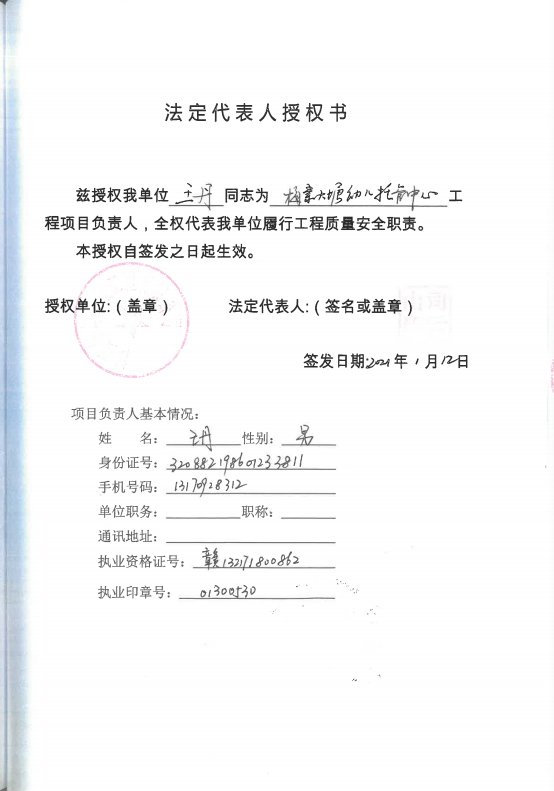 法定代表人授权书
兹授权我单位 王丹 同志为 梅大塘幼儿托育中心 工
程项目负责人，全权代表我单位履行工程质量安全职责。
本授权自签发之日起生效。
授权单位:（盖章） 法定代表人:（签名或盖章）
签发日期:2021年 1 月 12日
项目负责人基本情况:
姓 名: 王丹 性别: 男
身份证号: 320882198601233811
手机号码: 13170928312
单位职务: 职称:
通讯地址:
执业资格证号: 赣132171800862
执业印章号: 01300530